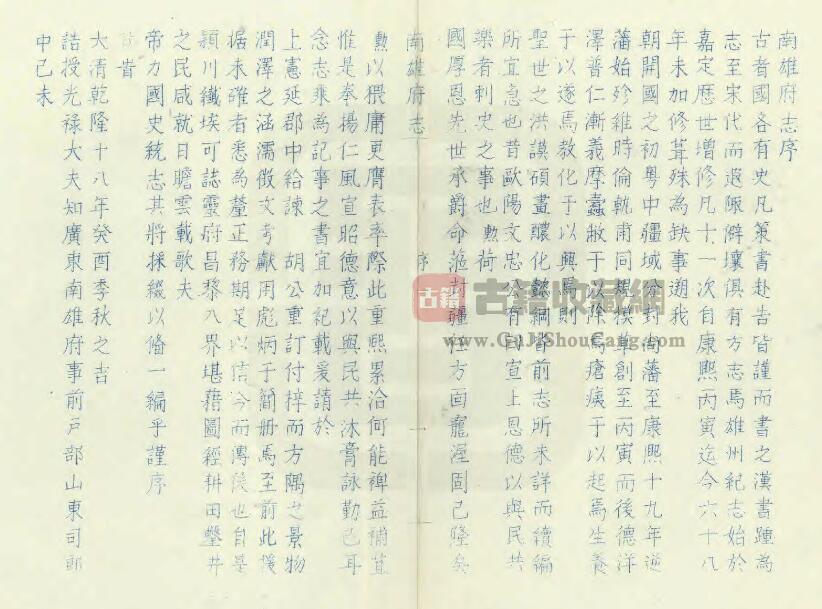 南雄府志序
古者國各有史凡策書赴告皆謹而書之漢書踵為
志至宋代而遐陬僻壤俱有方志焉雄州紀志始於
嘉定歷世增修凡十一次自康熙丙寅迄今六十八
年未加修葺殊為缺事遡我
朝開國之初粵中疆域分封尚藩至康熙十九年逆
藩始殄維時倫軌甫同規模草創至丙寅而後德洋
澤普仁漸義摩蠹敝于以除焉瘡痍于以起焉生養
于以遂焉教化于以興焉則
聖世之洪謨碩畫醲化懿綱皆前志所未詳而續編
所宜急也昔歐陽文忠公有曰宣上恩德以與民共
樂者刺史之事也勲荷
國厚恩先世承爵命 封疆 方面寵渥固已隆矣
南雄府志
序
一
勲以猥庸更膺表率際此重熙累洽何能裨益補苴
惟是奉揚仁風宣昭德意以與民共沐膏詠勤已耳
念志乘為記事之書宜加紀載爰請於
上憲延郡中給諫 胡公重訂付梓而方隅之景物
潤澤之涵濡徵文考獻用彪炳于簡册焉至前此援
据未確者悉為釐正務期足以信今而傳後也自是
潁川纖埃可誌靈府昌黎八界堪藉圖經耕田鑿井
之民咸就日瞻雲載歌夫
帝力國史統志其將採綴以脩一編乎謹序
旹
大清乾隆十八年癸酉季秋之吉
誥授光祿大夫知廣東南雄府事前戶部山東司郎
中己未
古籍
古籍收藏網
www.GuJiShouCang.com